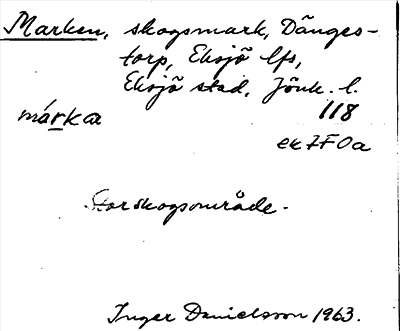 Marken, skogsmark, Dänges-
torp, Eksjö lfs,
Eksjö stad, Jönk. l.
márka 118
ek 7F 0a
Stor skogsområde.
Inger Danielsson 1963.